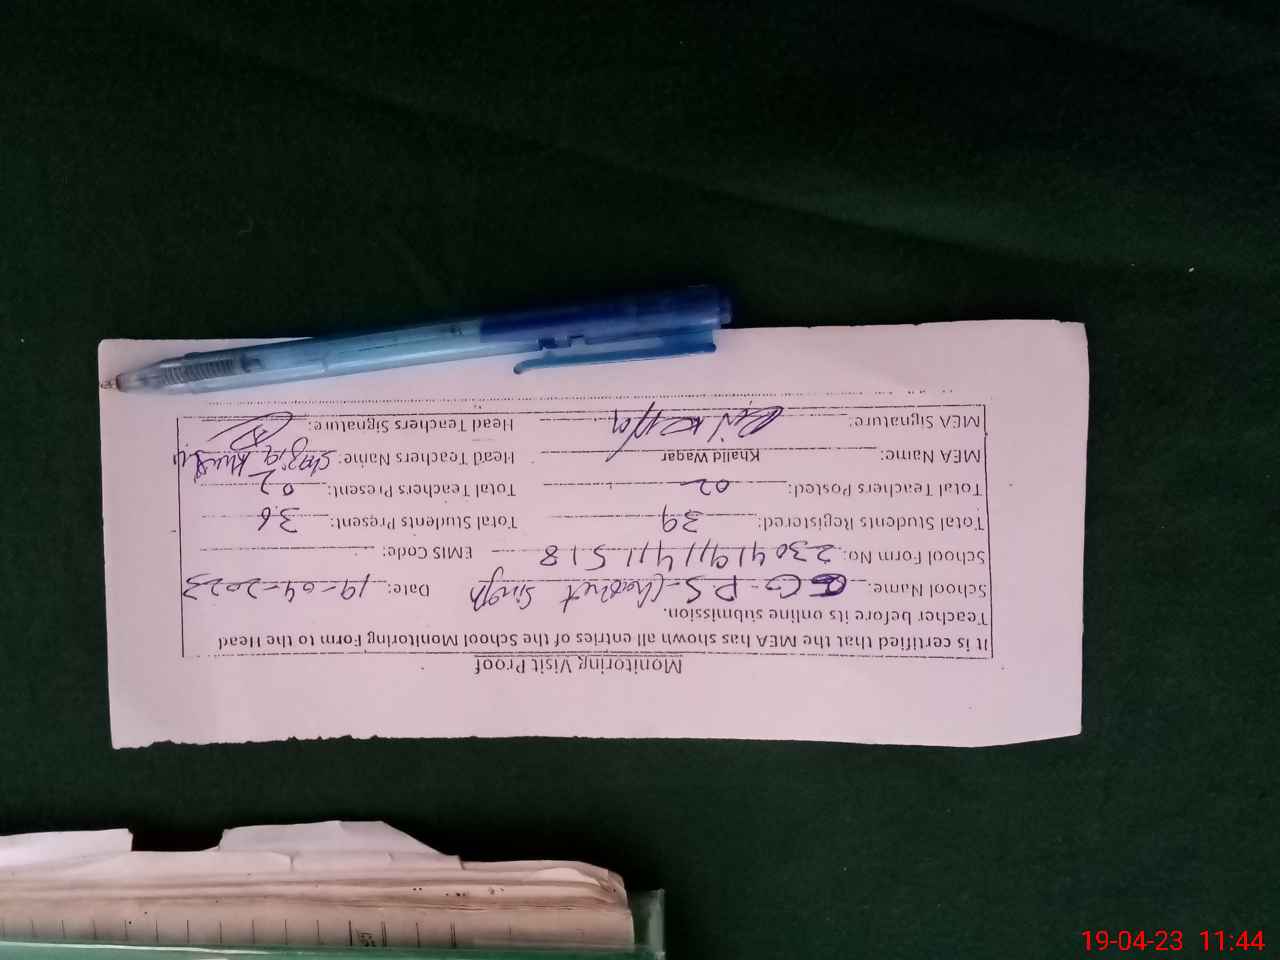 Monitoring Visit Proof
It is certified that the MEA has shown all entries of the School Monitoring Form to the Head
Teacher before its online submission.
School Name: GG-PS- Singh Date: 19-04-2023
School Form No: 2304191141151 8 EMIS Code:
Total Students Registered: 39 Total Students Present: 36
Total Teachers Posted: 02 Total Teachers Present: 02
MEA Name: Khalid Waqar Head Teachers Name: Shazia
MEA Signature: Head Teachers Signature:
19-04-23 11:44